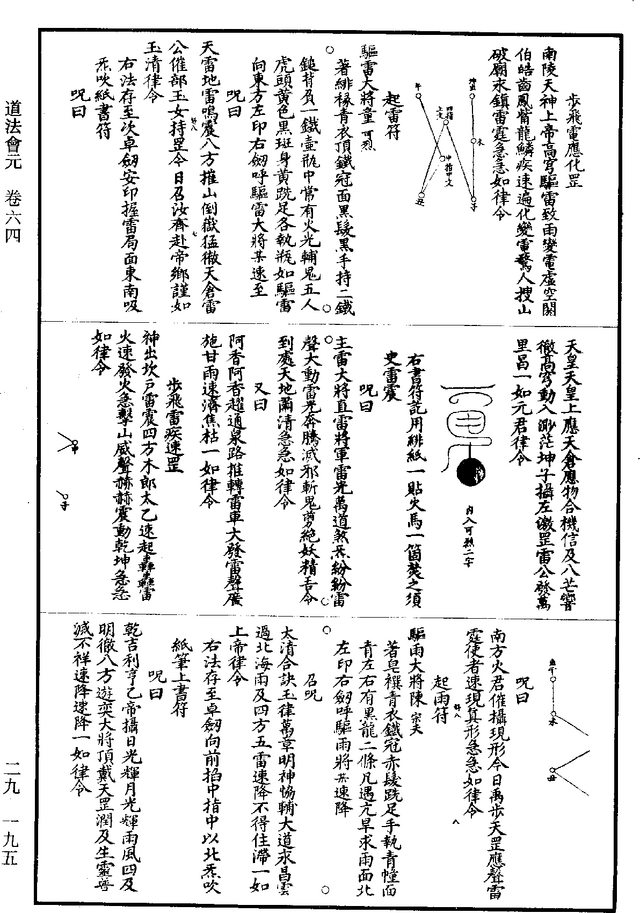 道法會元 卷六四
二九 一九五
步飛電應化罡
南陵天神上帝高穹驅雷致雨變電虛空闕
伯皓齒鳳觜龍鱗疾速遍化變電驚人搜山
破廟永鎮雷霆急急如律令
起雷符
驅雷大將童 可烈
著緋緣青衣頂鐵冠面黑髮黑手持二鐵
鎚背負一鐵壺瓶中常有火光輔鬼五人
虎頭黃色黑斑身黃跣足各執瓶如驅雷
向東方左印右劒呼驅雷大將某速至
呪曰
天雷地雷鳴震八方摧山倒嶽猛徹天倉雷
公催部玉女持罡今日召汝齊赴帝鄉謹如
玉清律令
右法存至次卓劒安印握雷局面東南吸
炁吹紙書符
呪曰
天皇天皇上應天倉應物合機信及八芒響
徹髙穹動入渺茫坤子攝左徵罡雷公發萬
里昌一如元君律令
內入可熱二字
右書符訖用緋紙一貼火馬一箇焚之須
史雷震
呪曰
主雷大將直雷將軍雷光萬道煞炁紛紛雷
聲大動雷光奔騰滅邪斬鬼剪絶妖精吾今
到處天地肅清急急如律令
又曰
阿香阿香趨適泉路推轉雷車大發雷聲廣
施甘雨速濟焦枯一如律令
步飛雷疾速罡
神出坎戶雷震四方木郎太乙速起轟轟雷
火速發火急擊山威聲赫赫震動乾坤急急
如律令
呪曰
南方火君催攝現形今日禹步天罡應聲雷
霆使者速現真形急急如律令
起雨符
驅雨大將陳 宗夫
著皂襈青衣鐵冠赤髮跣足手執青幢面
青左右有黑龍二條凡遇亢旱求雨面北
左印右劒呼驅雨將某速降
召呪
太清合訣玉律萬章明神恊輔大道永昌雲
過北海雨及四方五雷速降不得住滯一如
上帝律令
右法存至卓劒向前掐中指中以北炁吹
紙筆上書符
呪曰
乾吉利亨乙帝攝日光輝月光輝雨風四及
明徹八方遊奕大將頂戴天罡潤及生靈蕁
滅不祥速降速降一如律令